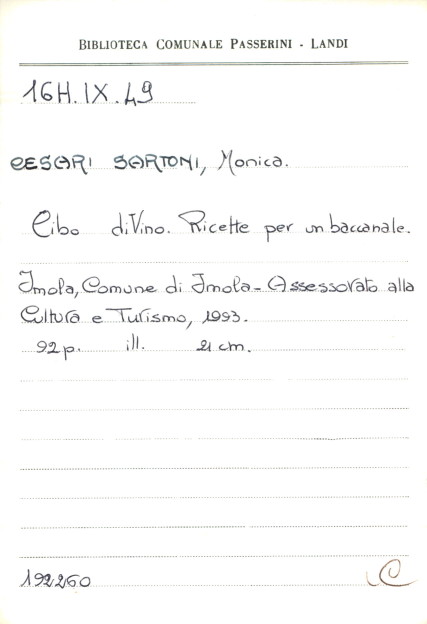 BIBLIOTECA COMUNALE PASSERINI - LANDI
16H.IX.49
CESARI SARTONI, Monica.
Cibo diVino. Ricette per un baccanale.
Imola, Comune di Imola - Assessorato alla
Cultura e Turismo, 1993.
92 p. ill. 21 cm.
192260
C